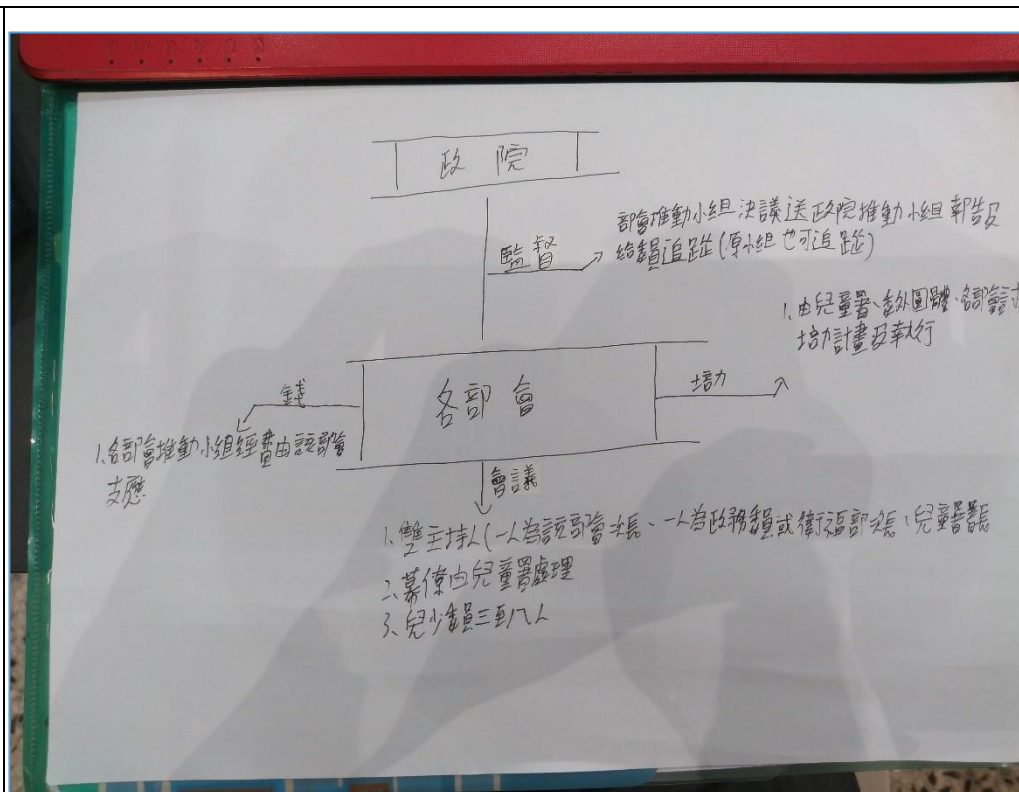 政院
部會推動小組決議送政院推動小組報告及
給委員追蹤(原小組也可追蹤)
監督
1、由兒童署、委外團體、各部會
培力計畫及執行
各部會
培力
錢
1、各部會推動小組經費由該部會
支應
會議
1、雙主持人(一人為該部會次長、一人為政務委員或衛福部次長、兒童署署長
2、幕僚由兒童署處理
3、兒少委員三至八人